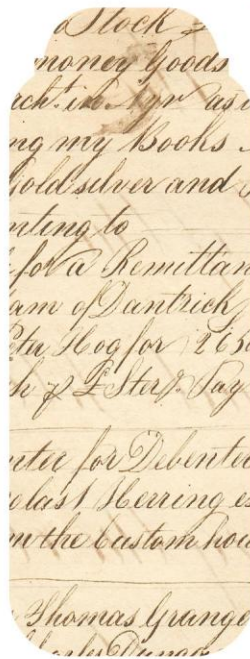 Stock
money Goods
rch in Ayr as
ng my Books
Gold silver and
nting to
for a Remittan
am of Dantzick
Peter Hog for 263
h of £ Ster
orter for Debenter
last Herring ex
m the Custom hou
Thomas Grango
Charles Dunca